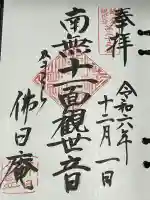 奉拝
令和六年
十二月一日
南無十一面観世音
佛日庵